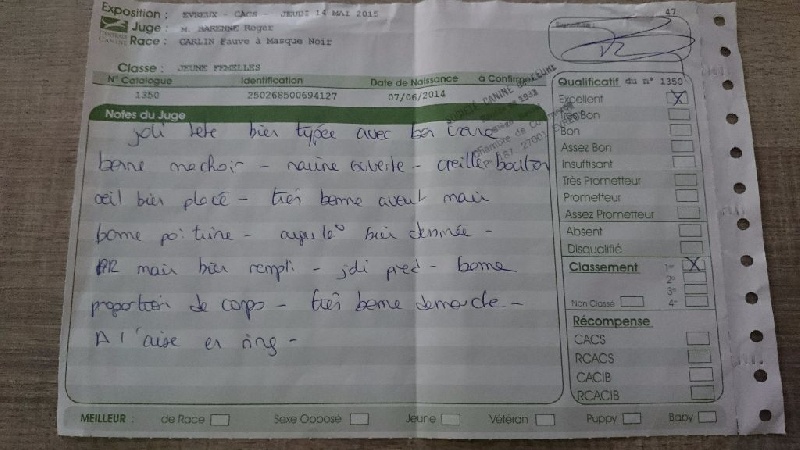 Exposition : EVREUX - CACS - JEUDI 14 MAI 2015
47
Juge : M. BARENNE Roger
Race : CARLIN Fauve à Masque Noir
Classe : JEUNE FEMELLES
N° Catalogue Identification Date de Naissance à Confirmer
1350 250268500694127 07/06/2014
Notes du Juge
joli tete bien typée avec bon crane
bonne machoir - narine ouverte - oreille bouton
oeil bien placé - très bonne avant main
bonne poitrine - bien dessinée -
main bien rempli - joli pied - bonne
proportion de corps - très bonne demarche -
A l'aise en ring -
Qualificatif du n° 1350
Excellent X
Très Bon
Bon
Assez Bon
Insuffisant
Très Prometteur
Prometteur
Assez Prometteur
Absent
Disqualifié
Classement 1er X
2e
3e
Non Classé 4e
Récompense
CACS
RCACS
CACIB
RCACIB
MEILLEUR : de Race Sexe Opposé Jeune Vétéran Puppy Baby